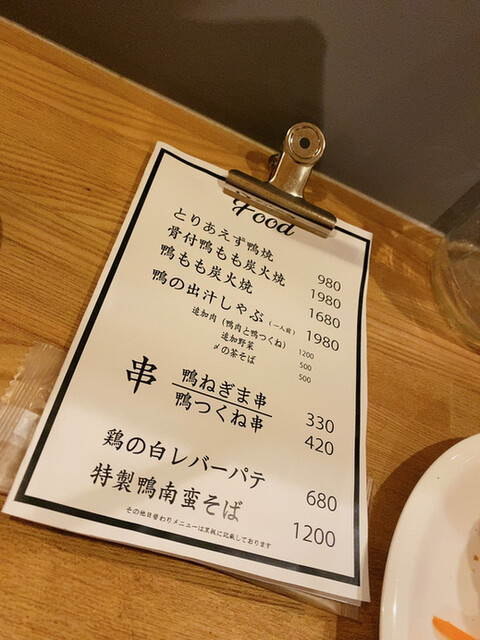 Food
とりあえず鴨焼 980
骨付鴨もも炭火焼 1980
鴨もも炭火焼 1680
鴨の出汁しゃぶ (一人前) 1980
追加肉 (鴨肉と鴨つくね) 1200
追加野菜 500
〆の茶そば 500
串
鴨ねぎま串 330
鴨つくね串 420
鶏の白レバーパテ 680
特製鴨南蛮そば 1200
その他日替わりメニューは黒板に記載しております